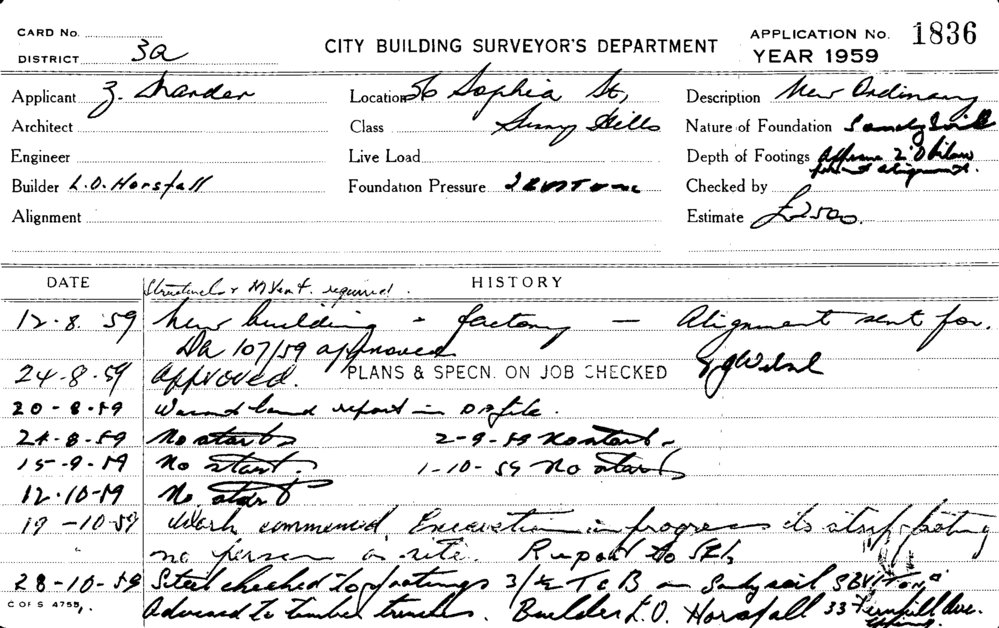 CARD No.
DISTRICT 3a
CITY BUILDING SURVEYOR'S DEPARTMENT
APPLICATION No. 1836
YEAR 1959
Applicant Z.
Location 56 Sophia St,
Description New Ordinary
Architect
Class Surry Hills
Nature of Foundation Sandy Soil
Engineer
Live Load
Depth of Footings 2'0 below
alignment.
Builder L.O. Horsfall
Foundation Pressure
Checked by
Alignment
Estimate £2500.
DATE
HISTORY
Structural + Vent. required.
12.8.59 New building - factory - Alignment sent for.
DA 107/59 approved
24-8-59 Approved. PLANS & SPECN. ON JOB CHECKED
20-8-59 report in DA file.
24-8-59 No start 2-9-59 No start -
15-9-59 No start. 1-10-59 No start
12.10-59 No start
19-10-59 Work commenced, Excavation in progress to strip footing
no person on site. Report to
28-10-59 Steel checked to footings T & B in Sandy soil
C OF S 4755
Advised to timber trenches. Builder L.O. Horsfall 33 Fernhill Ave.
Epping.